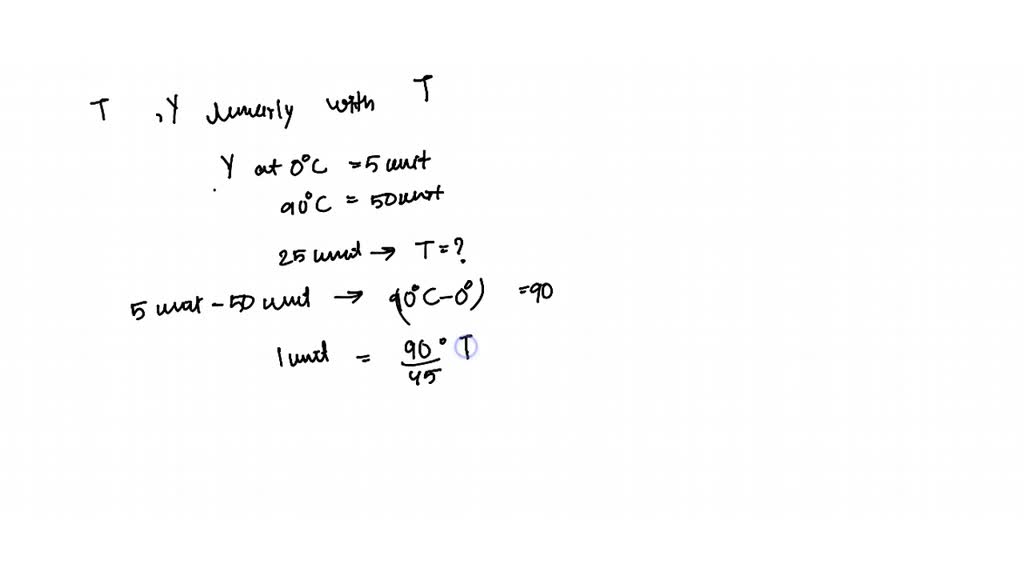 T , Y linearly with T
Y at 0°C = 5 unit
90°C = 50 unit
25 unit → T = ?
5 unit - 50 unit → (90°C - 0°) = 90
1 unit = 90°/45 T